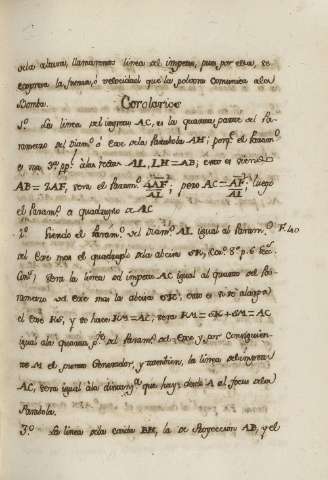 de la altura, llamaremos linea del impetu, pues por ella se
expresa la fuerza, ò velocidad que la polvora comunica a la
Bomba.
Corolarios
1º. La linea del impetu AC, es la quarta parte del Pa-
rametro del Diamº. ò Exe de la Parabola AH; porqᵉ. el Paramº.
es una 3ª. pp. à las rectas AL, LH = AB; esto es siendo
AB = 2AF, sera el Paramº. 4AF²/AL; pero AC = AF²/AL; luego
el Paramº. es quadruplo de AC
2º. Siendo el Paramº. del Diamº. AL igual al Paramº. F. 40
del Exe mas el quadruplo de la abcisa OR, (Corº. 8º. p. 6
Con.) Sera la linea del impetu AC igual al quarto del Pa-
rametro del Exe mas la abcisa OR, esto es si se alarga
el Exe RO, y se hace RM = AC, sera RM = OR + OM = AC
igual a la quarta pᵗᵉ. del Paramº. del Exe y por consiguien-
te M el punto Generador, y tambien, la linea del impetu
AC, sera igual a la distancia qᵉ. hay desde A al focus de la
Parabola.
3º. La linea de la caida BH, la de Proyeccion AB, y el